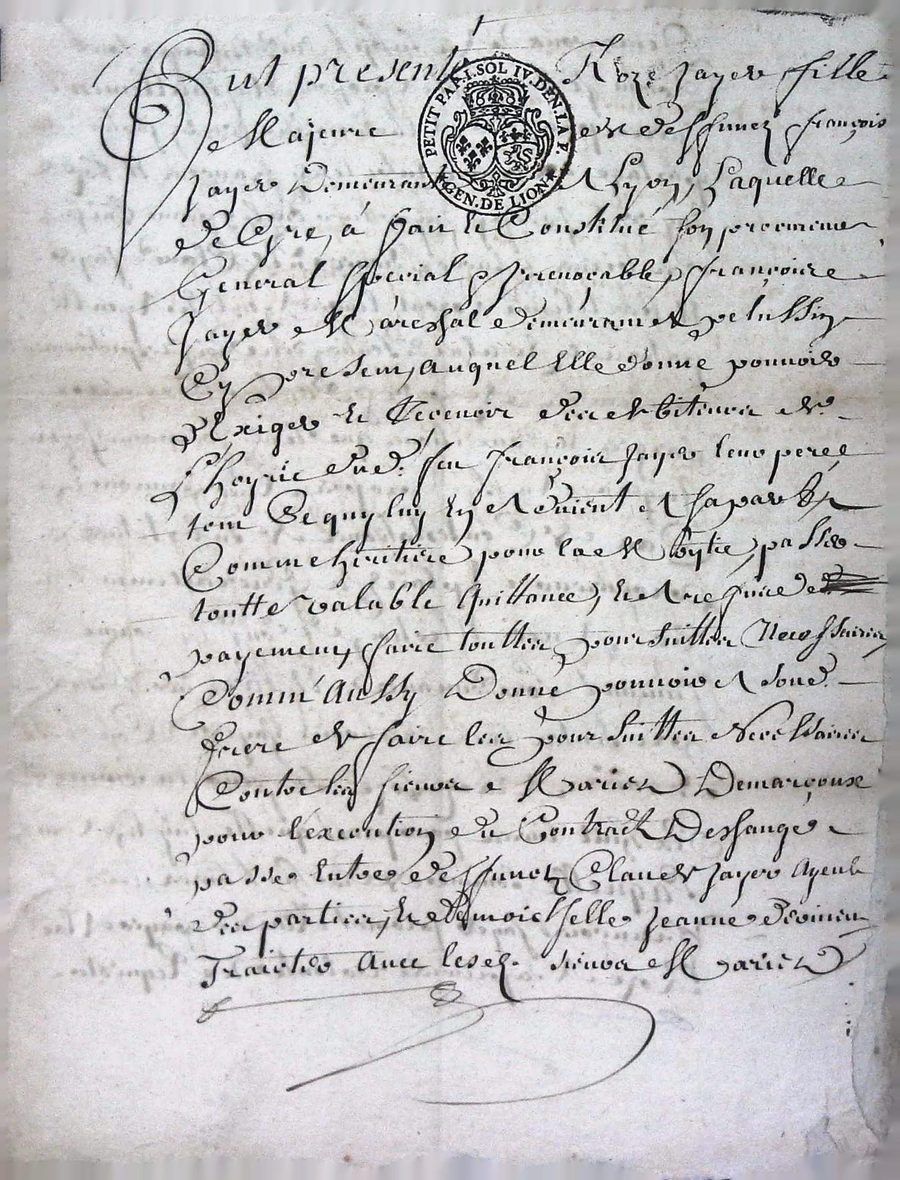 Fut presente Roze Jayer fille
Majeure de deffunct françois
Jayer Demeurant a Lyon, Laquelle
de Gre, a fait et Constitué son procureur
General special et irrevocable, françoise
Jayer Mareshal demeurant a pelussin
Cy present, auquel Elle donne pouvoir
d'Exiger et Recevoir des debiteurs de
L'hoyrie dud. feu françois Jayer leur pere
tout Ce quy luy Est deü et sa part
Comme heritiere pour la Mytie, passer
toutte valable quittance, Et a refus de
payement, faire touttes poursuittes Necessaires
Comm'Aussy Donne pouvoir a sond.
frere de faire les poursuittes Necessaires
Contre les sieurs Mariez Demarçoux
pour l'execution du Contract Deshange
passe Entre deffunct Claude Jayer Ayeul
des parties, Et demoiselle Jeanne
Traister avec lesd. sieurs Mariez
PETIT PAP. I. SOL IV. DEN. LA F.
GEN. DE LION